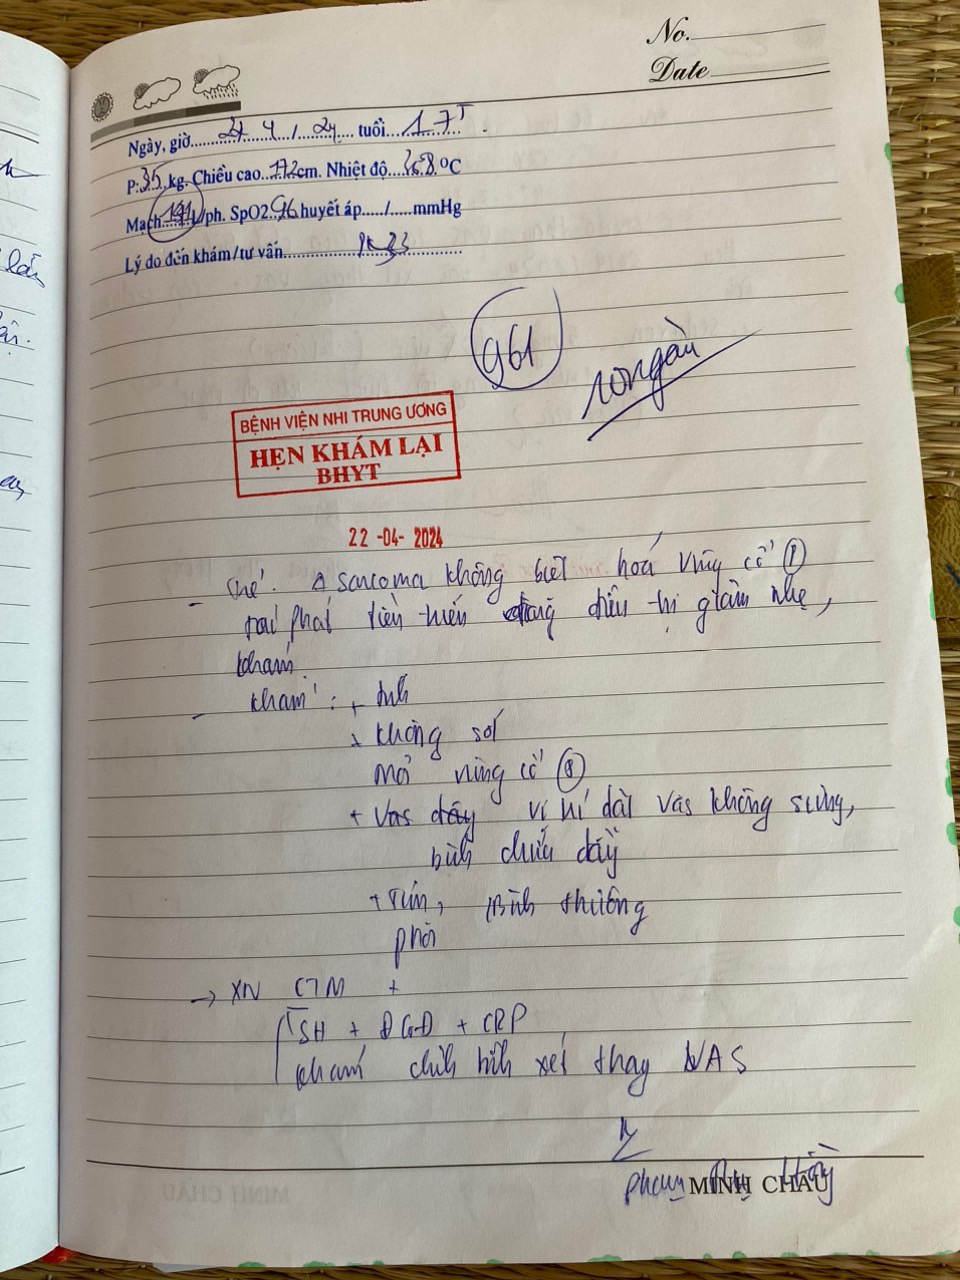 No.
Date
Ngày, giờ 4 / 24 tuổi 17T
P: 35 kg. Chiều cao 172 cm. Nhiệt độ 36.8 °C
Mạch 141 l/ph. SpO2 96 huyết áp...../.....mmHg
Lý do đến khám/tư vấn
961
10 ngàu
BỆNH VIỆN NHI TRUNG ƯƠNG
HẸN KHÁM LẠI
BHYT
22 -04- 2024
- sarcoma không biệt hoá vùng cổ
phát tiến triển điều trị giảm nhẹ,
khám
- khám : +
+ không sốt
mổ vùng cổ
+ Vas đáy vị trí đặt vas không sưng,
đầy
+ tim, Bình thường
phổi
→ XN CTM +
SH + ĐGĐ + CRP
khám chỉnh hình xét thay VAS
MINH CHÂU